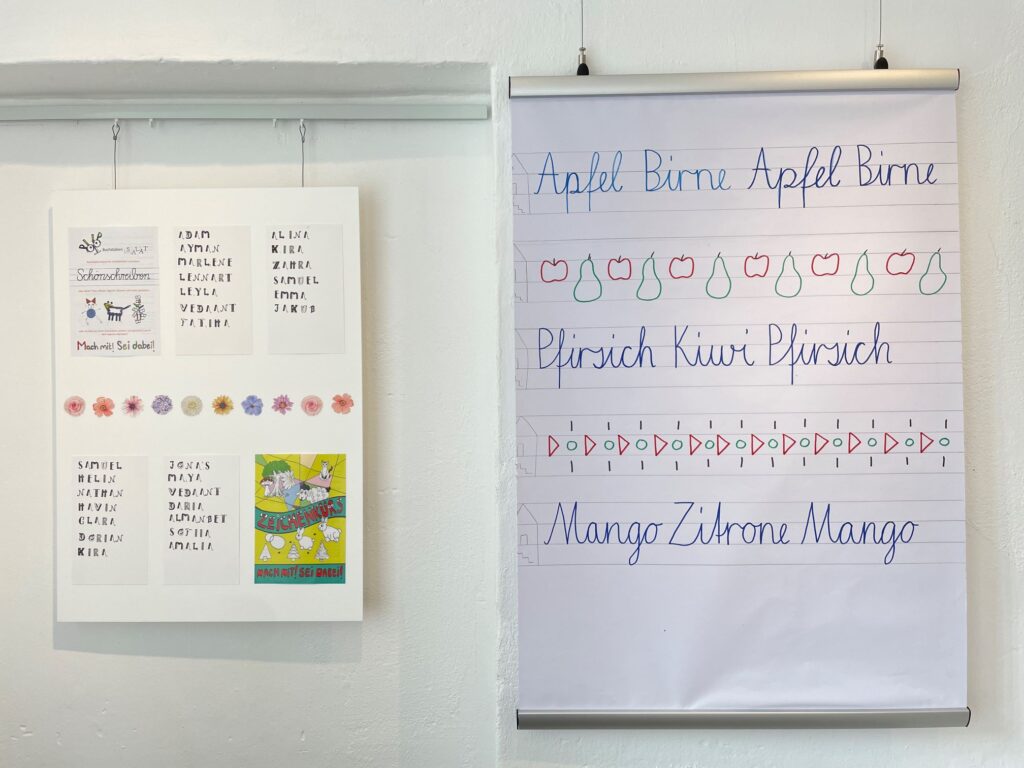 Buchstaben SALAT
Schönschreiben
Mach mit! Sei dabei!
ADAM
AYMAN
MARLENE
LENNART
LEYLA
VEDAANT
FATIHA
ALINA
KIRA
ZAHRA
SAMUEL
EMMA
JAKUB
SAMUEL
HELIN
NATHAN
HAVIN
CLARA
DORIAN
KIRA
JONAS
MAYA
VEDAANT
DARIA
ALMANBET
SOFIIA
AMALIA
ZEICHENKURS
MACH MIT! SEI DABEI!
Apfel Birne Apfel Birne
Pfirsich Kiwi Pfirsich
Mango Zitrone Mango